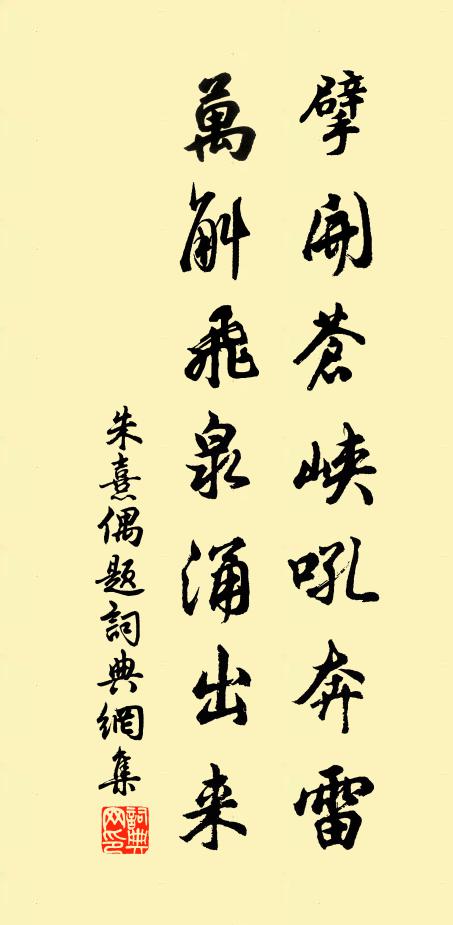 擘開蒼峽吼奔雷
萬斛飛泉涌出来
朱熹偶题詞典網集
詞典網印